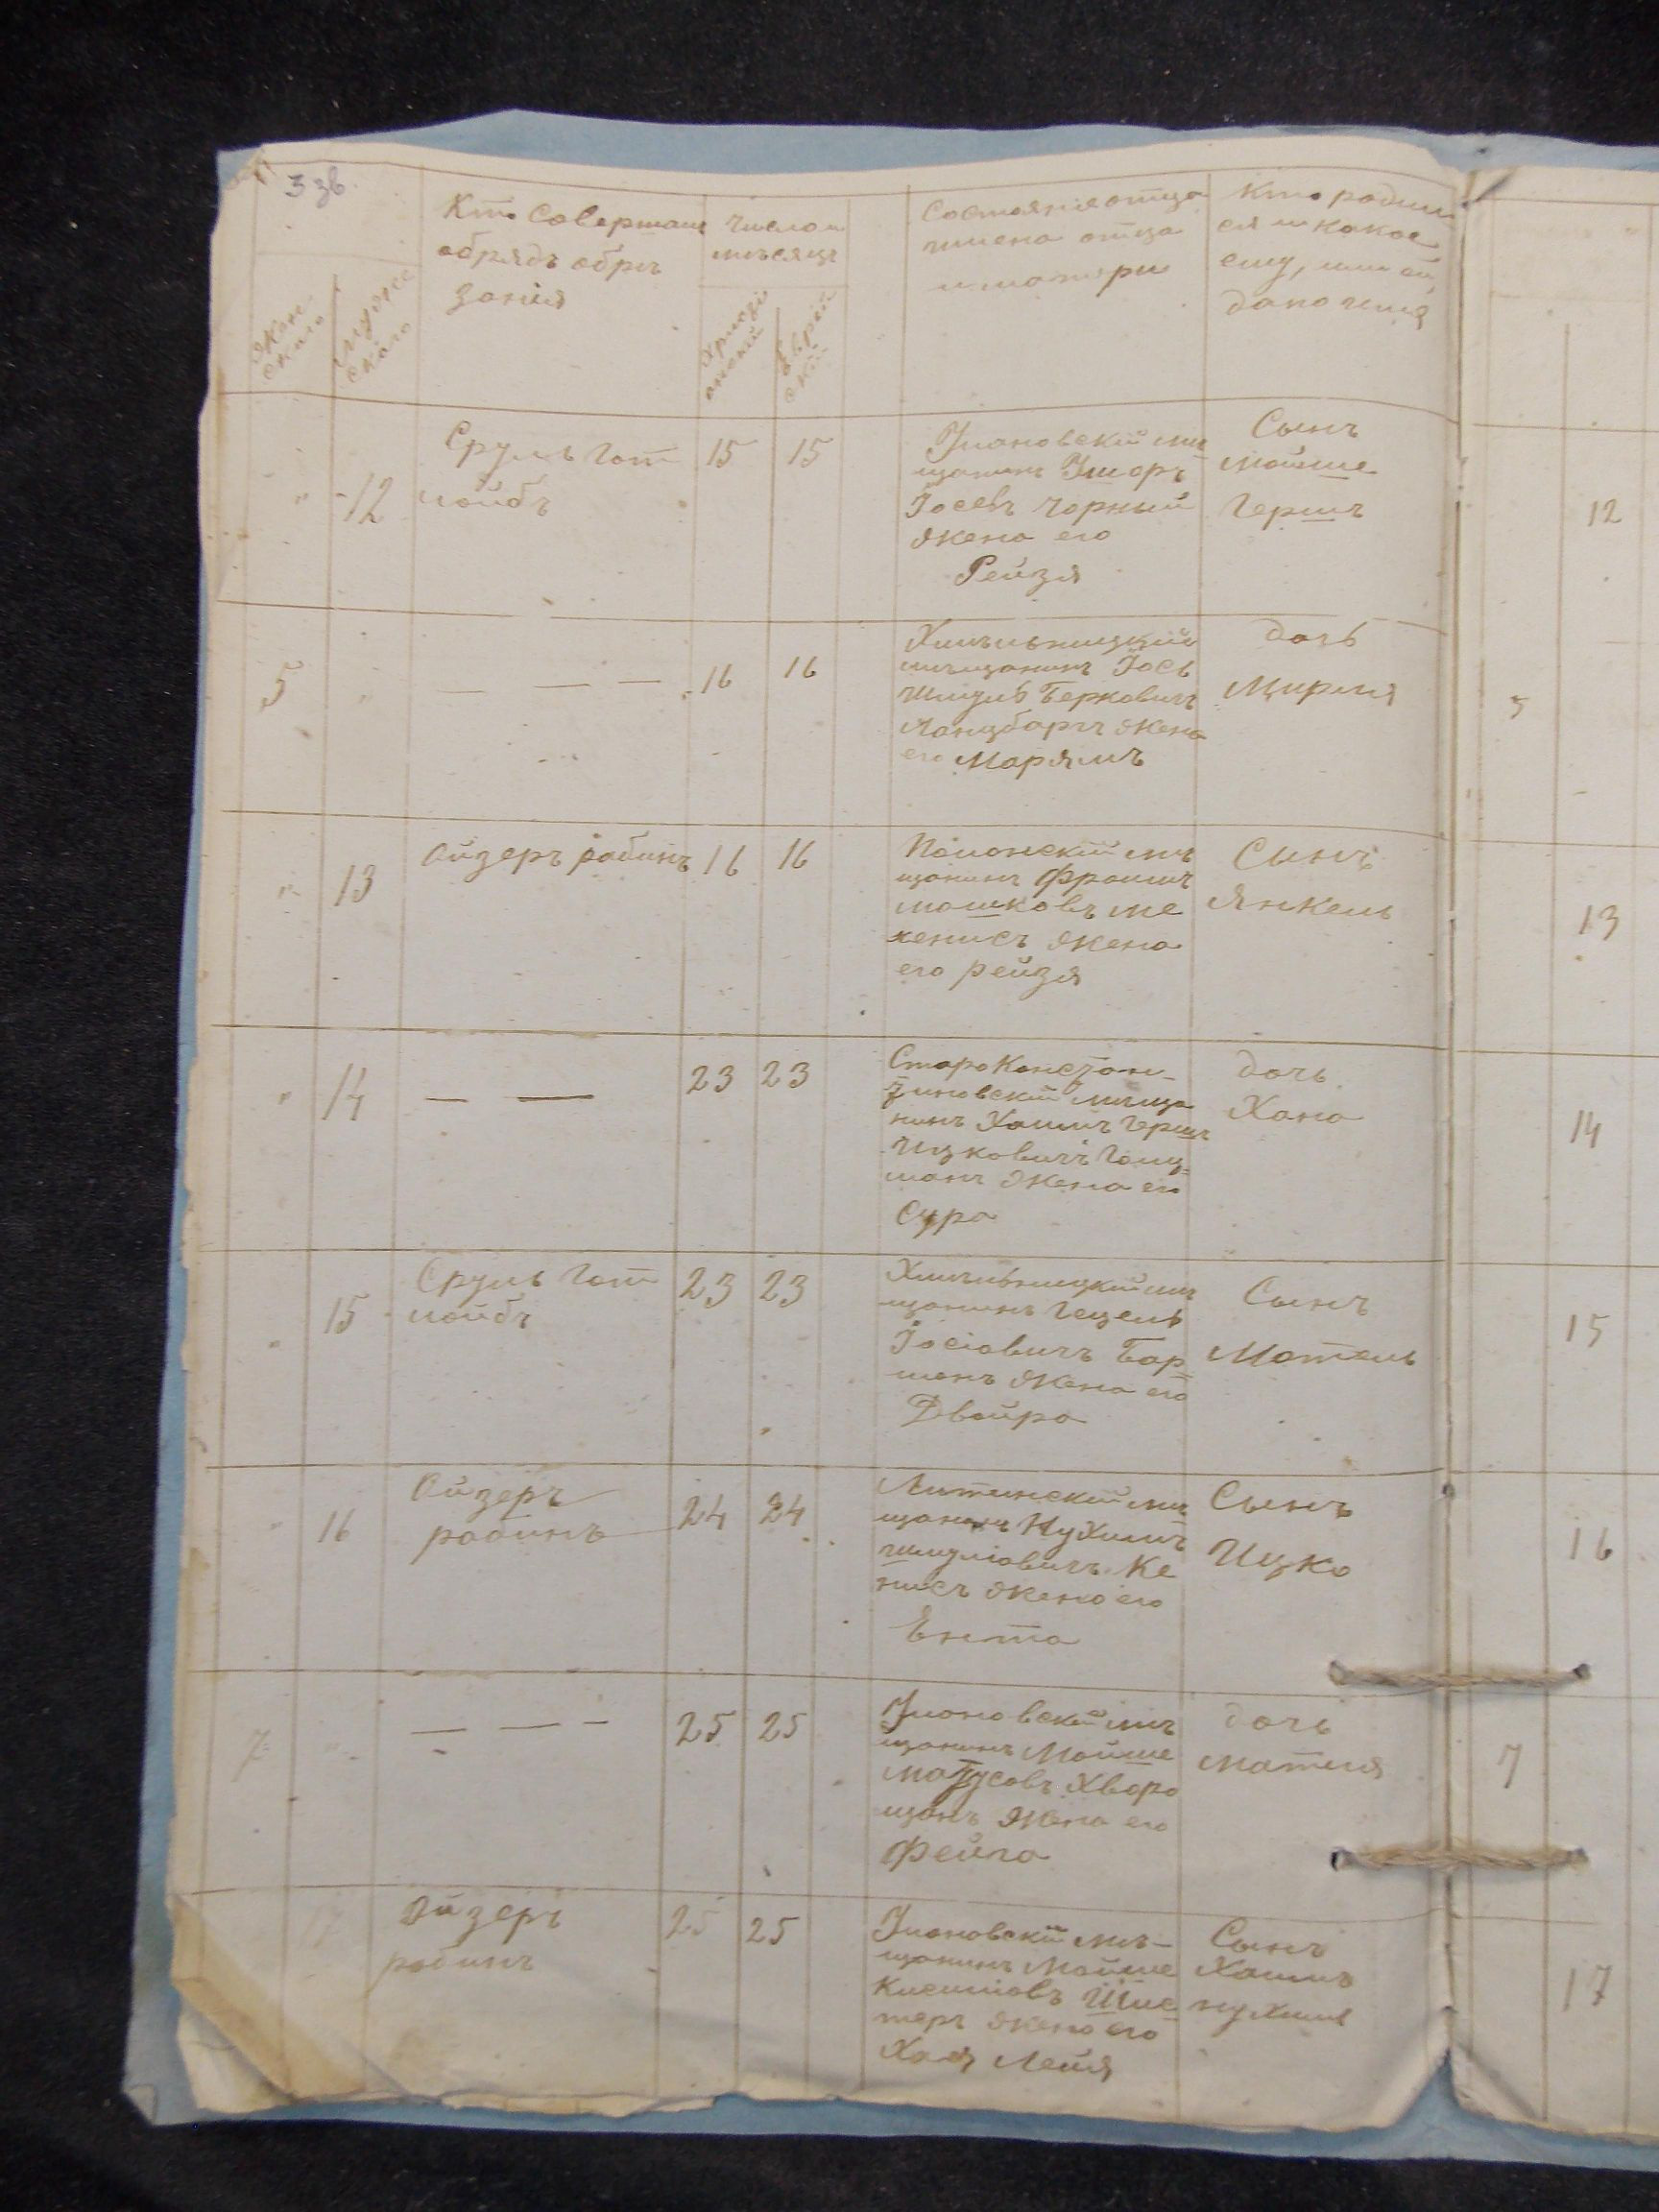 3 зв.
Женскаго
Мужескаго
Кто Совершал
обрядъ обрѣ
занія
Число и
мѣсяцъ
Христі
анскій
Еврей
скій
Состояніе отца
имена отца
и матери
Кто родил
ся и какое
ему, или ей,
дано имя
" 12
Сруль Гот
лойбъ
15 15
Улановскій мѣ
щанинъ Ушоръ
Іосевъ Чорный
жена его
Рейзя
Сынъ
Мойше
Гершъ
12
5 "
— — —
16 16
Хмѣльницкій
мѣщанинъ Іось
Шмуль Берковичъ
Ланцбаргъ жена
его Марямъ
дочь
Мирля
5
" 13
Айзеръ рабинъ
16 16
Полонскій мѣ
щанинъ Фроимъ
Мошковъ Ме
женисъ жена
его Рейзя
Сынъ
Янкель
13
" 14
— —
23 23
Староконстан-
тиновскій мѣща
нинъ Хаимъ Гершъ
Ицковичъ Голц-
манъ жена его
Сура
дочь
Хана
14
" 15
Сруль Гот
лойбъ
23 23
Хмѣльницкій мѣ
щанинъ Гецель
Іосіовичъ Бар
манъ жена его
Двойра
Сынъ
Мотель
15
" 16
Айзеръ
рабинъ
24 24
Литинскій мѣ
щанинъ Нухимъ
Шмуліовичъ Ке
нисъ жена его
Ента
Сынъ
Ицко
16
7 "
— — —
25 25
Улановскій мѣ
щанинъ Мойше
Матусовъ Хваро
щанъ жена его
Фейга
дочь
Матля
7
17
Айзеръ
рабинъ
25 25
Улановскій мѣ-
щанинъ Мойше
Шме
теръ жена его
Хая Лейя
Сынъ
Хаимъ
Нухимъ
17